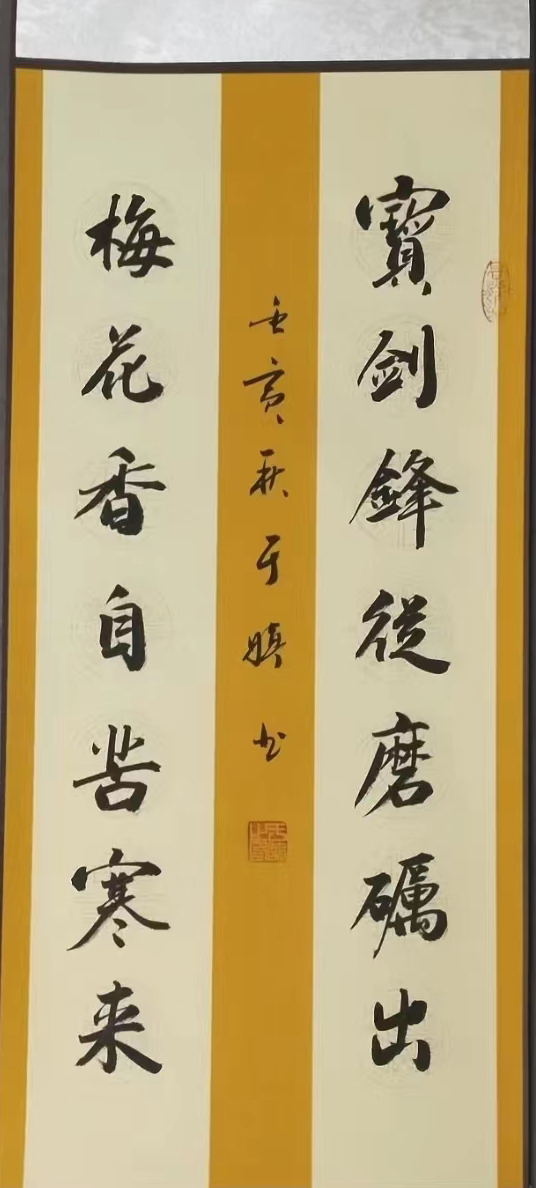 寶劍鋒從磨礪出
梅花香自苦寒来
秋于
书